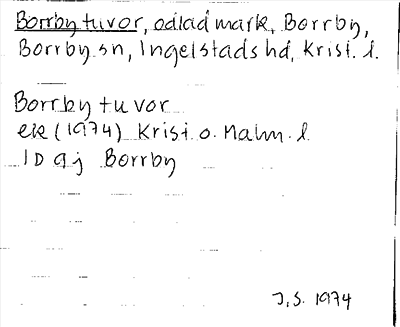 Borrby tuvor, odlad mark, Borrby,
Borrby sn, Ingelstads hd, Krist. l.
Borrby tuvor
ek (1974) Krist. o. Malm. l
1D 9j Borrby
J.S. 1974